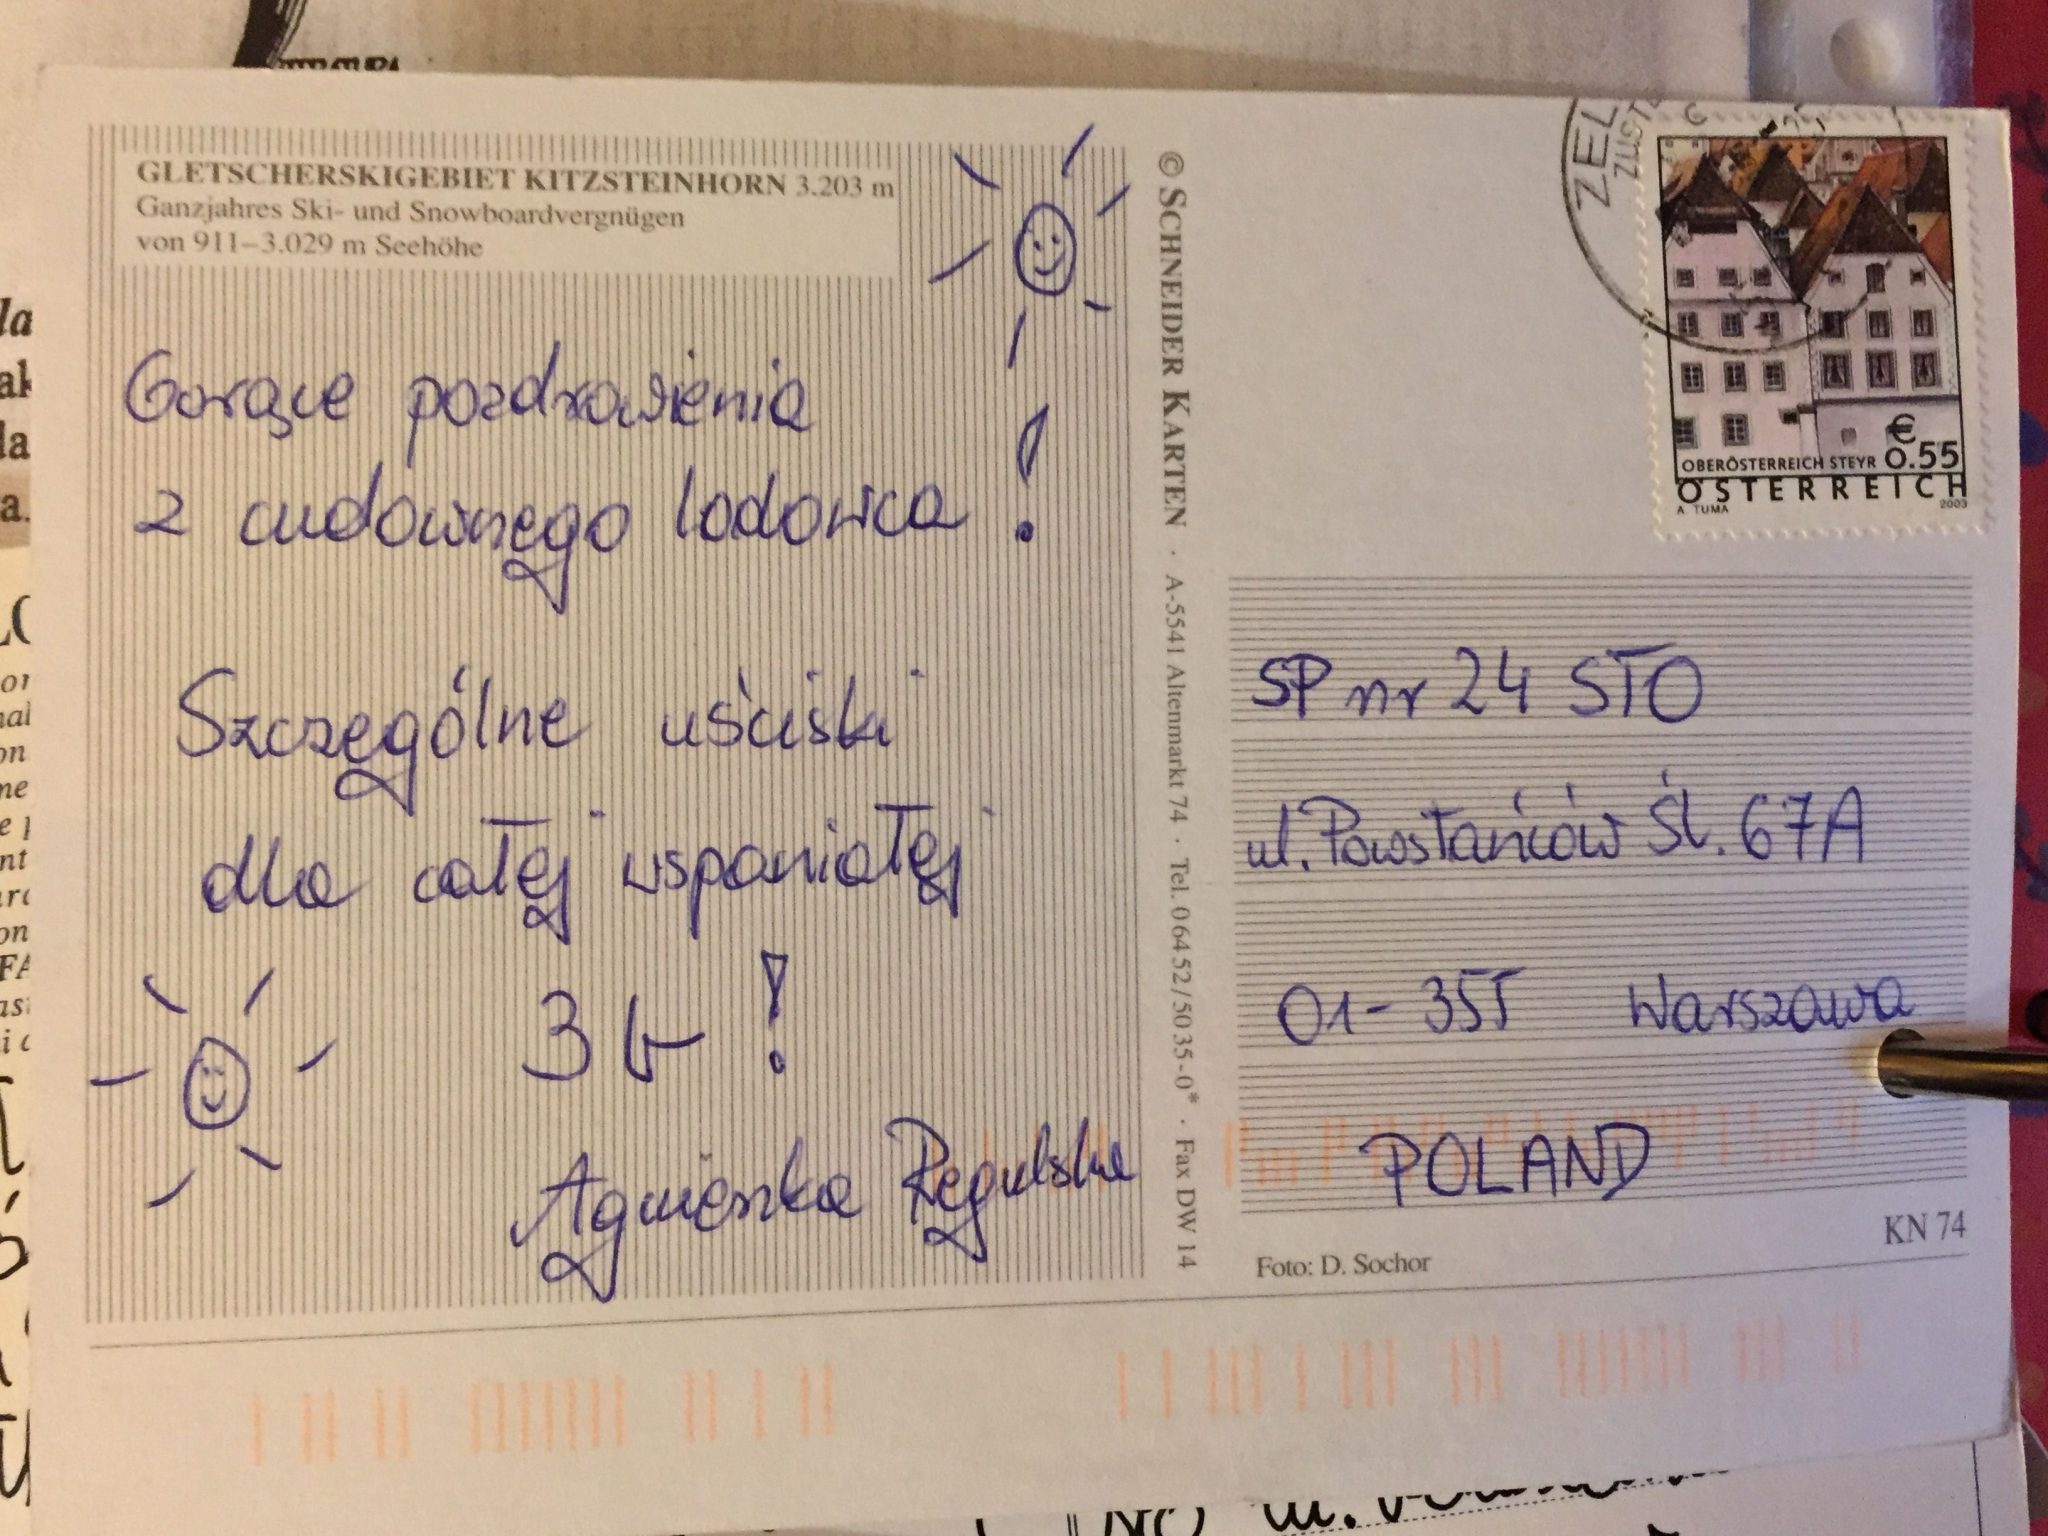 GLETSCHERSKIGEBIET KITZSTEINHORN 3.203 m
Ganzjahres Ski- und Snowboardvergnügen
von 911–3.029 m Seehöhe
Gorące pozdrowienia
z cudownego lodowca!
Szczególne uściski
dla całej wspaniałej
3b!
Agnieszka Regulska
© SCHNEIDER KARTEN · A-5541 Altenmarkt 74 · Tel. 06452/5035-0* · Fax DW 14
ZEL
€
0.55
OBERÖSTERREICH STEYR
ÖSTERREICH
A TUMA 2003
SP nr 24 STO
ul. Powstańców Śl. 67A
01-355 Warszawa
POLAND
Foto: D. Sochor
KN 74